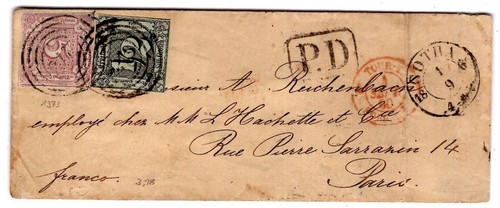 P.D
GOTHA
1 9
5
1/2
Monsieur A Reichenbach
1373
employé chez M M L Hachette et Cie
Rue Pierre Sarrazin 14
franco.
Paris.